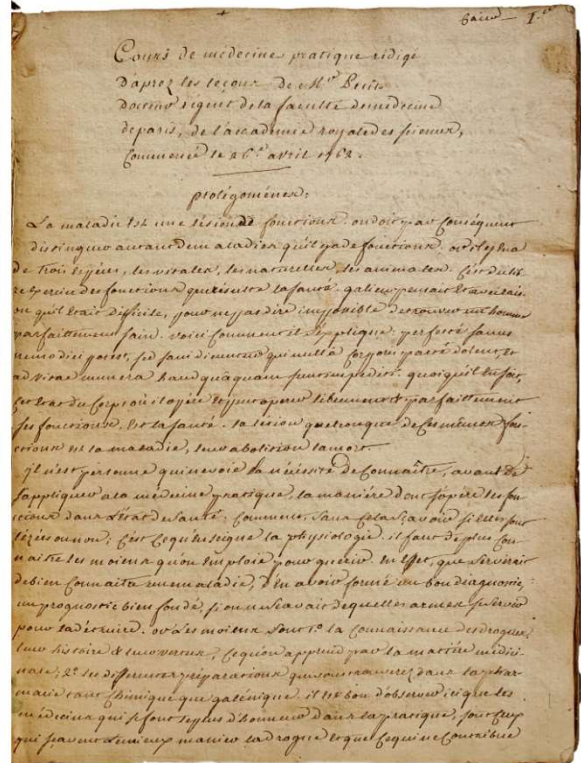 1.er
Cours de médecine pratique rédigé
d'aprez les leçons de Mr Petit
docteur régent de la faculté de medecine
de paris, de l'academie royale des sciences,
Commencé le 26e avril 1762.
prolégomènes.
La maladie est une lésion de fonctions. on doit par conséquent
distinguer autant de maladies qu'il y a de fonctions. or il y en a
de trois especes, les vitales, les naturelles, les animales. C'est du lib
re exercice des fonctions que résulte la santé. galien pensait avec rais
on qu'il était difficile, pour ne pas dire impossible de trouver un homme
parfaitement sain. voici comment il s'explique: perfecté sanus
nemo dici potest, sed sani dicuntur qui nullâ corporis parte dolent, et
ad vitae munera haud quaquam sunt impediti. quoiqu'il en soit,
cet état du corps où il opère et peut opérer librement et parfaitement
ses fonctions, est la santé. la lésion quelconque de ces mêmes fon-
ctions est la maladie, leur abolition la mort.
il n'est personne qui ne voie la nécessité de connaître, avant de
s'appliquer a la médecine pratique, la manière dont s'opère les fon
ctions dans l'état de santé; comment, sans cela sçavoir si elles sont
lézées ou non; c'est ce qu'enseigne la physiologie. il faut de plus con
naitre les moiens qu'on emploie pour guérir. en effet, que serviroit
de bien connaitre une maladie, d'en avoir formé un bon diagnostic,
un prognostic bien fondé, si on ne savait de quelles armes se servir
pour la détruire. or les moiens sont 1o. la connaissance des drogues,
leur histoire & leurs vertus, ce qu'on apprend par la matière médici
nale; 2o. les differentes préparations que vous trouverez dans la phar
macie tant chimique que galénique. il est bon d'observer ici que les
médecins qui se font le plus d'honneur dans la pratique, sont ceux
qui sçavent le mieux manier la drogue et que ce qui ne contribue